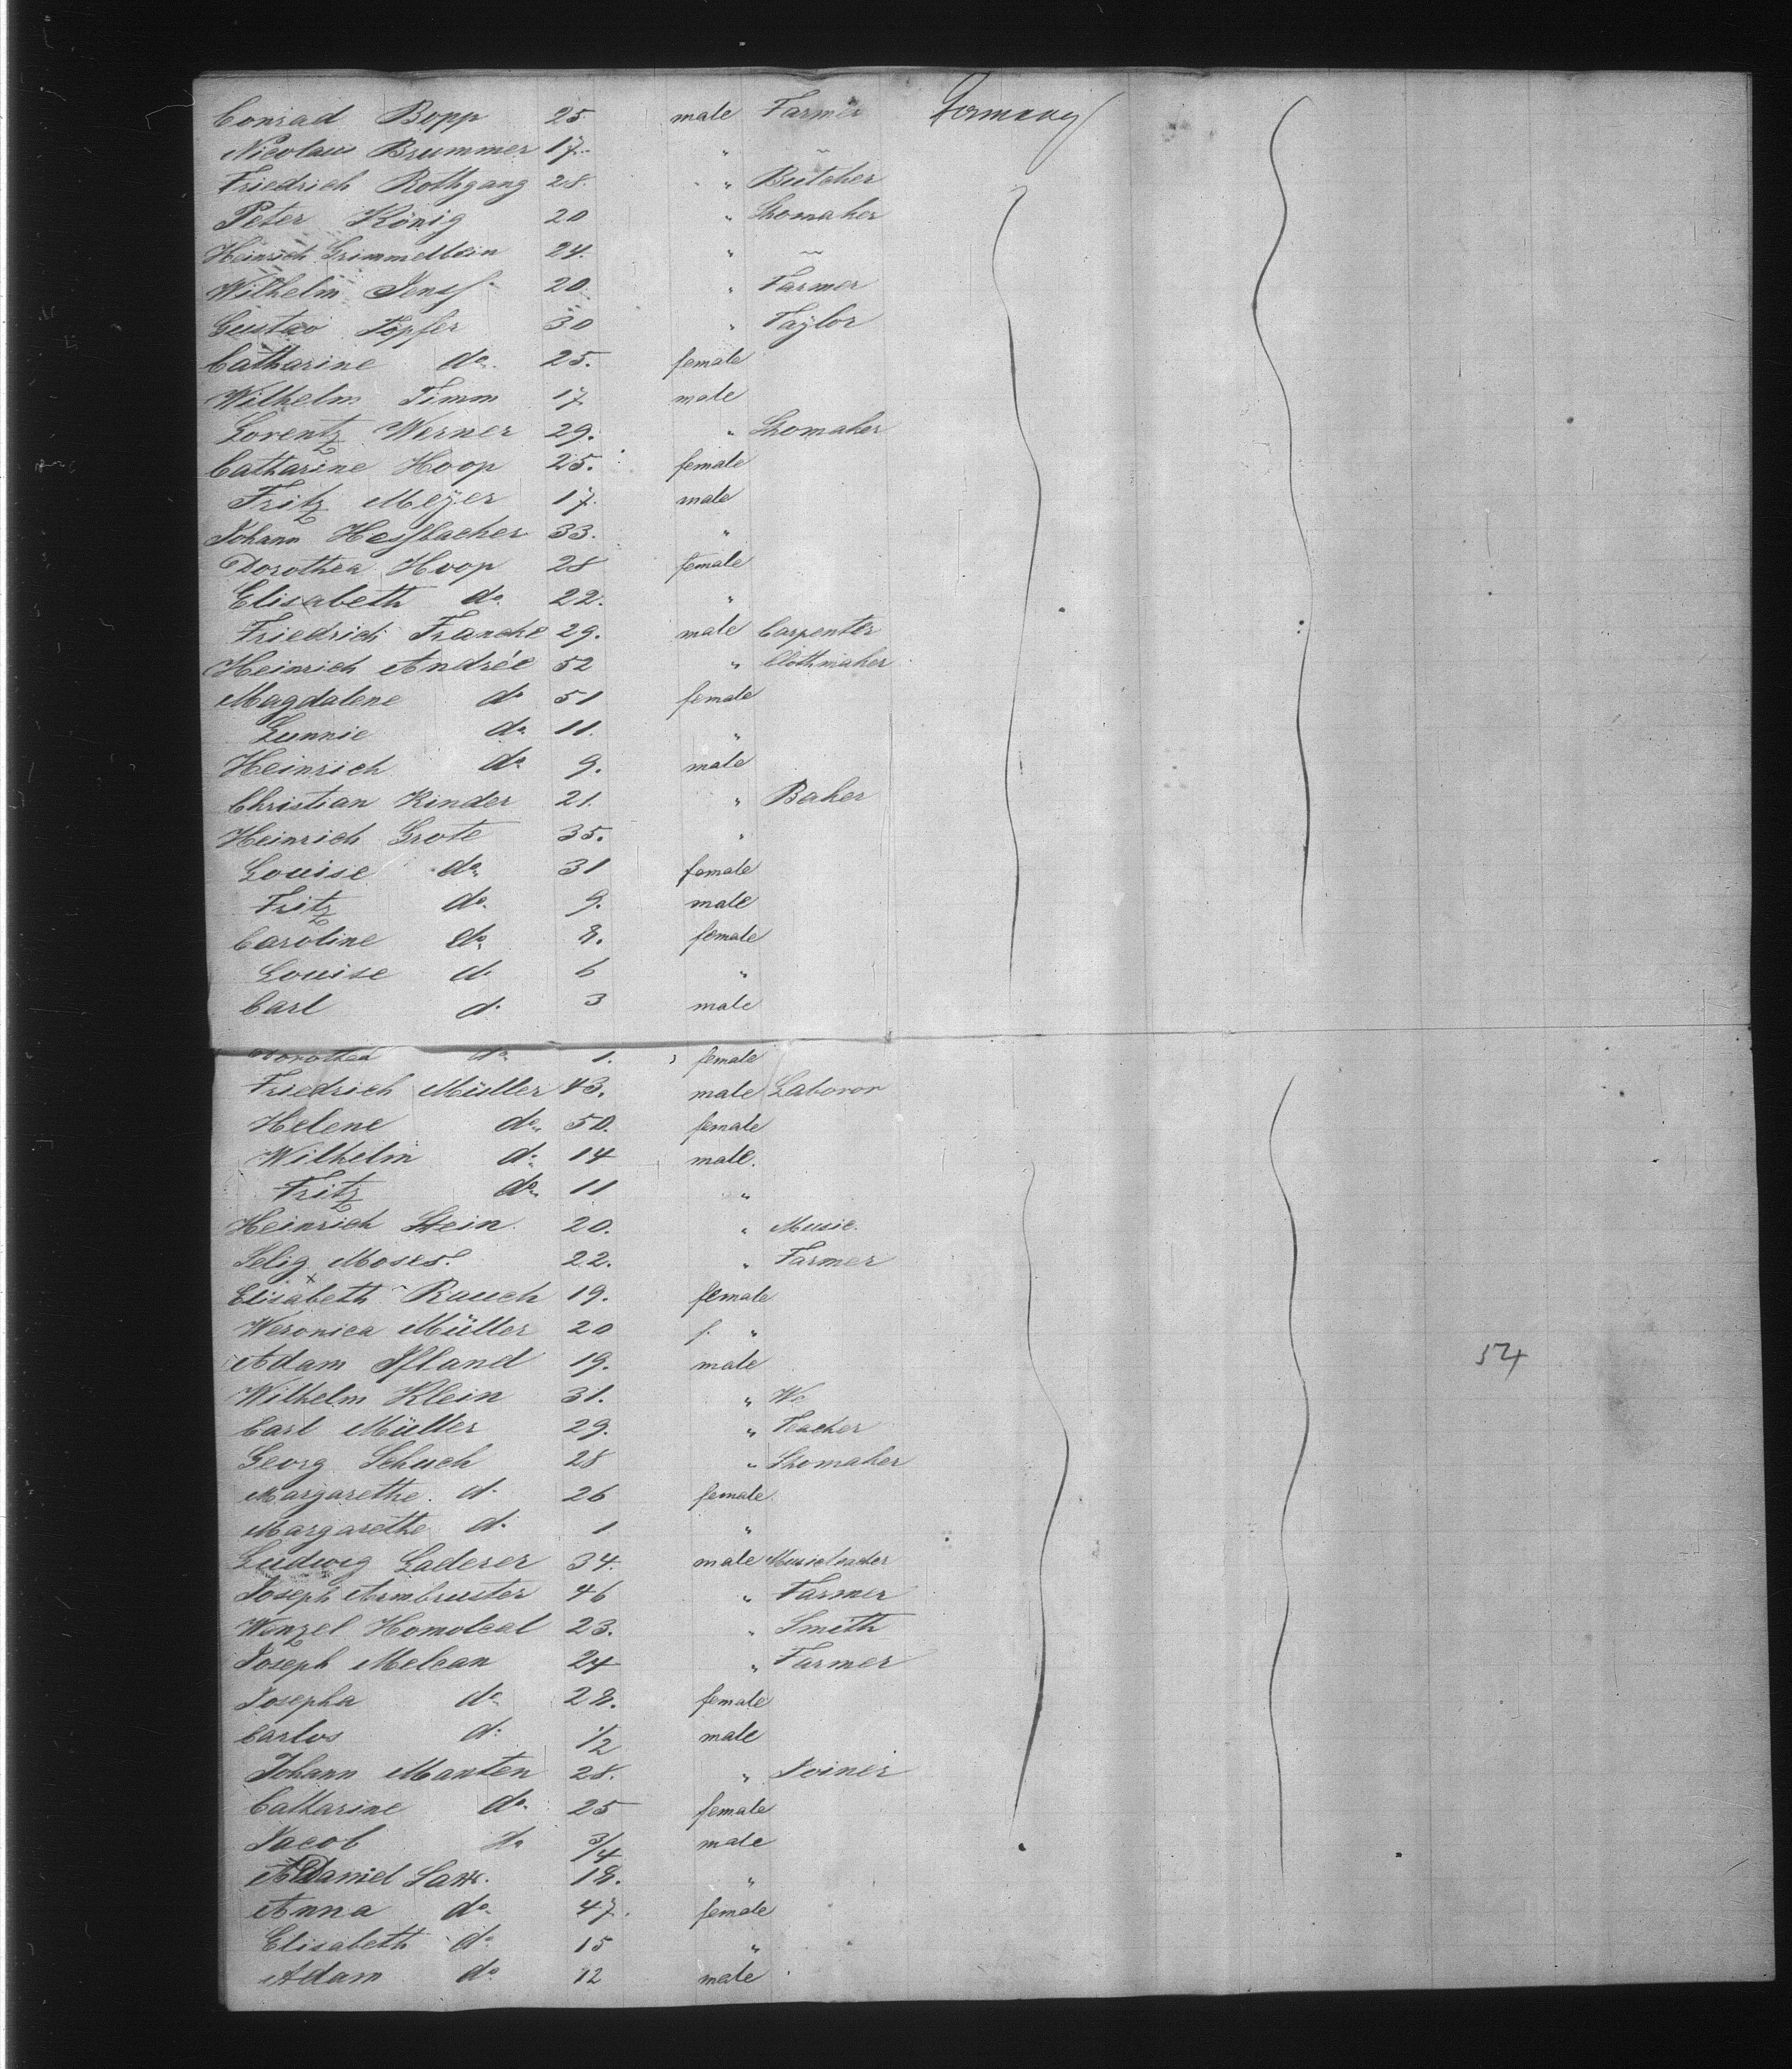 Conrad Bopp 25 male Farmer Germany
Nicolaus Brummer 17. " ~
Friedrich Rothgang 28. " Butcher
Peter König 20 " Shomaker
Heinrich Grimmelbein 24. " ~
Wilhelm 20 " Farmer
Gustav Töpfer 30 " Taylor
Catharine do. 25. female
Wilhelm Timm 17 male
Lorentz Werner 29. " Shomaker
Catharine Hoop 25. female
Fritz Meÿer 17. male
Johann 33. "
Dorothea Hoop 28 female
Elisabeth do. 22. "
Friedrich Francke 29. male Carpenter
Heinrich Andrée 52 " Clothmaker
Magdalene do 51 female
do 11. "
Heinrich do 9. male
Christian Kinder 21. " Baker
Heinrich Grote 35. "
Louise do. 31 female
Fritz do. 9. male
Caroline do. 8. female
Louise d. 6 "
Carl d. 3 male
Dorothea do 1. female
Friedrich Müller 43. male Laboror
Helene do. 50. female
Wilhelm d. 14 male.
Fritz do. 11 "
Heinrich Stein. 20. " Music.
Selig Moses. 22. " Farmer
Elisabeth Rauch 19. female
Weronica Müller 20 f. "
Adam Ifland 19. male 54
Wilhelm Klein 31. " We
Carl Müller 29. " Teacher
Georg Schuch 28 " Shomaker
Margarethe. d. 26 female
Margarethe d. 1 "
Ludwig Laderer 34. male Musicteacher
Joseph Armbruster 46 " Farmer
Wenzel 23. " Smith
Joseph Melcan 24 " Farmer
Josepha do. 28. female
Carlos d. 1/2 male
Johann Manten 28. " Joiner
Catharine do. 25 female
Jacob do 3/4 male
Daniel 18. "
Anna do. 47. female
Elisabeth d. 15 "
Adam do. 12 male